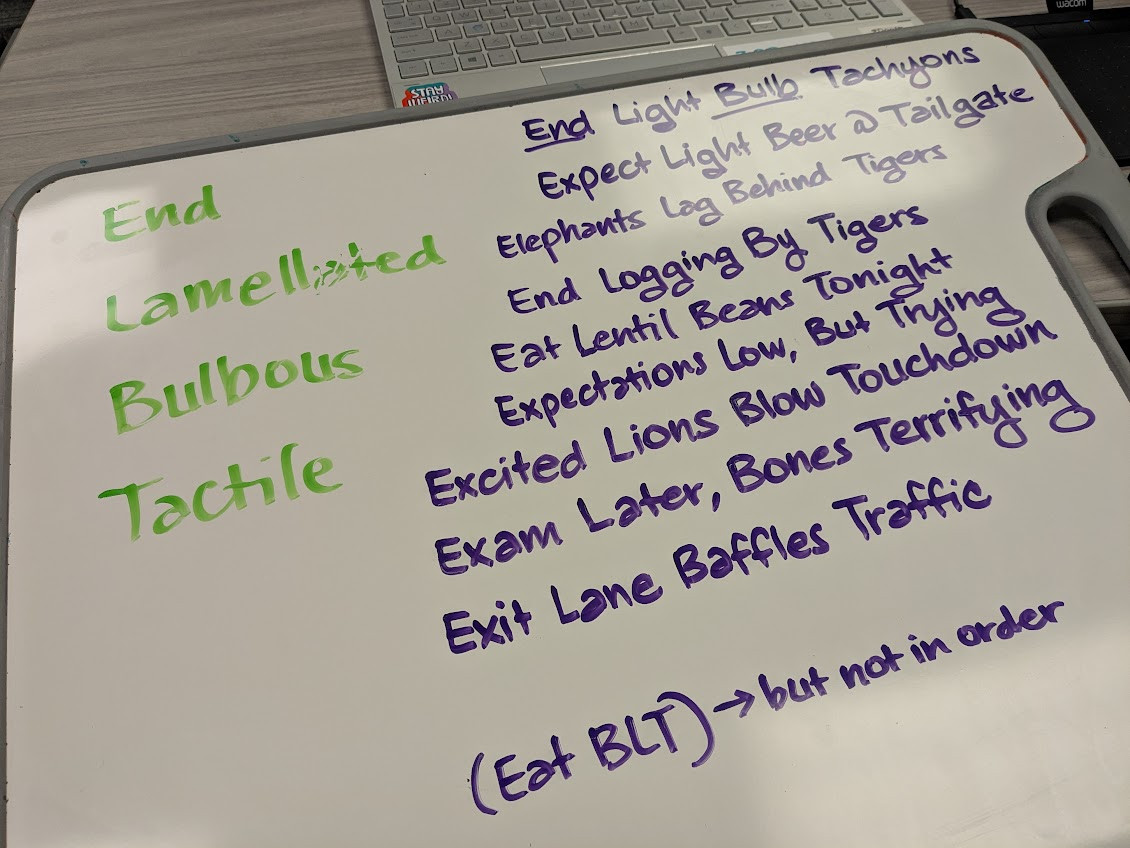 wacom
STAY WEIRD!
End
Lamellated
Bulbous
Tactile
End Light Bulb Tachyons
Expect Light Beer @ Tailgate
Elephants Lag Behind Tigers
End Logging By Tigers
Eat Lentil Beans Tonight
Expectations Low, But Trying
Excited Lions Blow Touchdown
Exam Later, Bones Terrifying
Exit Lane Baffles Traffic
(Eat BLT) → but not in order